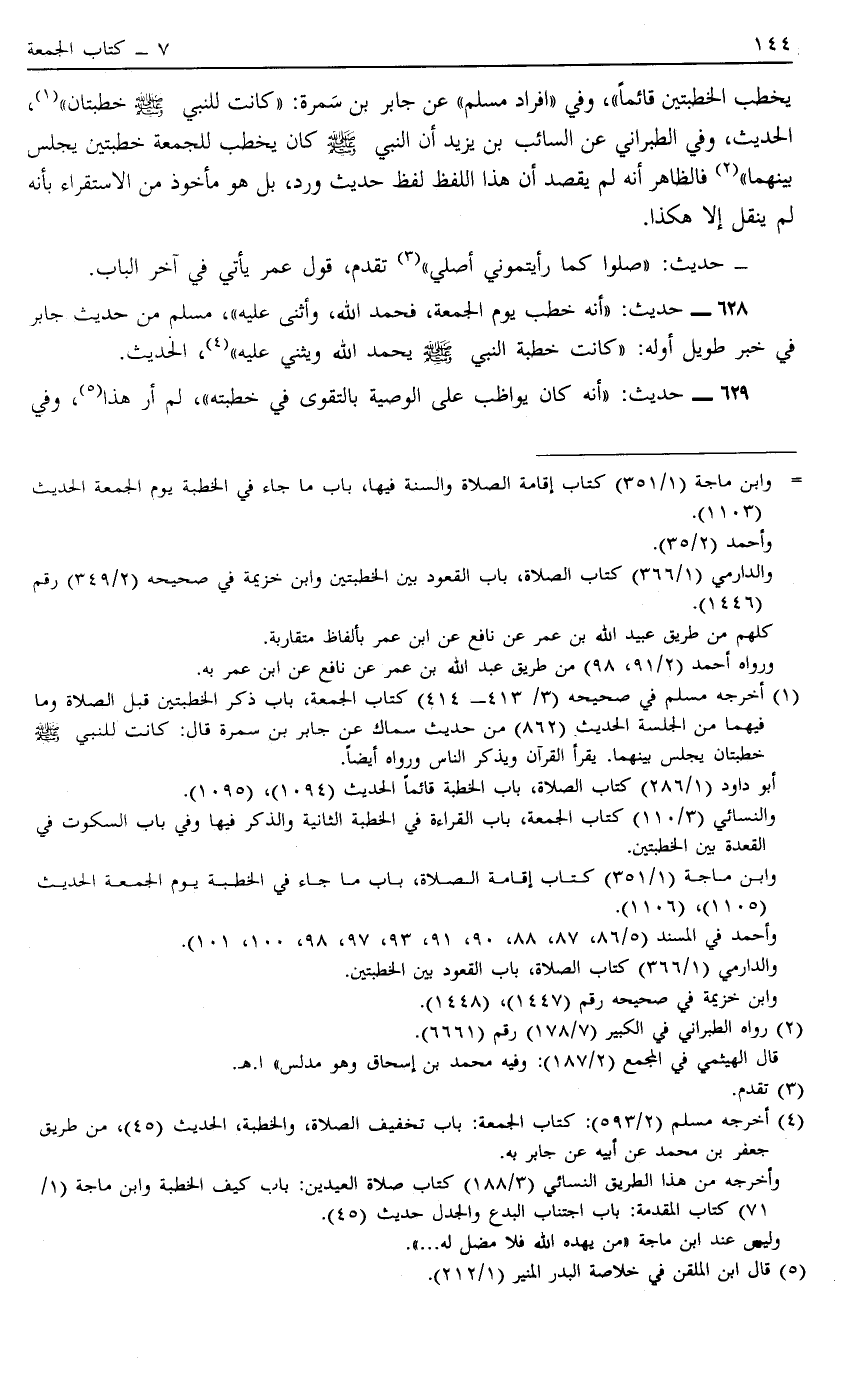 ١٤٤ ٧ ــ كتاب الجمعة
يخطب الخطبتين قائماً»، وفي «افراد مسلم» عن جابر بن سَمرة: «كانت للنبي ﷺ خطبتان»(١)،
الحديث، وفي الطبراني عن السائب بن يزيد أن النبي ﷺ كان يخطب للجمعة خطبتين يجلس
بينهما»(٢) فالظاهر أنه لم يقصد أن هذا اللفظ لفظ حديث ورد، بل هو مأخوذ من الاستقراء بأنه
لم ينقل إلا هكذا.
ــ حديث: «صلوا كما رأيتموني أصلي»(٣) تقدم، قول عمر يأتي في آخر الباب.
٦٢٨ ــ حديث: «أنه خطب يوم الجمعة، فحمد الله، وأثنى عليه»، مسلم من حديث جابر
في خبر طويل أوله: «كانت خطبة النبي ﷺ يحمد الله ويثني عليه»(٤)، الحديث.
٦٢٩ ــ حديث: «أنه كان يواظب على الوصية بالتقوى في خطبته»، لم أر هذا(٥)، وفي
= وابن ماجة (٣٥١/١) كتاب إقامة الصلاة والسنة فيها، باب ما جاء في الخطبة يوم الجمعة الحديث
(١١٠٣).
وأحمد (٣٥/٢).
والدارمي (٣٦٦/١) كتاب الصلاة، باب القعود بين الخطبتين وابن خزيمة في صحيحه (٣٤٩/٢) رقم
(١٤٤٦).
كلهم من طريق عبيد الله بن عمر عن نافع عن ابن عمر بألفاظ متقاربة.
ورواه أحمد (٩١/٢، ٩٨) من طريق عبد الله بن عمر عن نافع عن ابن عمر به.
(١) أخرجه مسلم في صحيحه (٣/ ٤١٣ــ ٤١٤) كتاب الجمعة، باب ذكر الخطبتين قبل الصلاة وما
فيهما من الجلسة الحديث (٨٦٢) من حديث سماك عن جابر بن سمرة قال: كانت للنبي ﷺ
خطبتان يجلس بينهما. يقرأ القرآن ويذكر الناس ورواه أيضاً.
أبو داود (٢٨٦/١) كتاب الصلاة، باب الخطبة قائماً الحديث (١٠٩٤)، (١٠٩٥).
والنسائي (١١٠/٣) كتاب الجمعة، باب القراءة في الخطبة الثانية والذكر فيها وفي باب السكوت في
القعدة بين الخطبتين.
وابن ماجة (٣٥١/١) كتاب إقامة الصلاة، باب ما جاء في الخطبة يوم الجمعة الحديث
(١١٠٥)، (١١٠٦).
وأحمد في المسند (٨٦/٥، ٨٧، ٨٨، ٩٠، ٩١، ٩٣، ٩٧، ٩٨، ١٠٠، ١٠١).
والدارمي (٣٦٦/١) كتاب الصلاة، باب القعود بين الخطبتين.
وابن خزيمة في صحيحه رقم (١٤٤٧)، (١٤٤٨).
(٢) رواه الطبراني في الكبير (١٧٨/٧) رقم (٦٦٦١).
قال الهيثمي في المجمع (١٨٧/٢): وفيه محمد بن إسحاق وهو مدلس» ا.هـ.
(٣) تقدم.
(٤) أخرجه مسلم (٥٩٣/٢): كتاب الجمعة: باب تخفيف الصلاة، والخطبة، الحديث (٤٥)، من طريق
جعفر بن محمد عن أبيه عن جابر به.
وأخرجه من هذا الطريق النسائي (١٨٨/٣) كتاب صلاة العيدين: باب كيف الخطبة وابن ماجة (١/
٧١) كتاب المقدمة: باب اجتناب البدع والجدل حديث (٤٥).
وليس عند ابن ماجة «من يهده الله فلا مضل له...».
(٥) قال ابن الملقن في خلاصة البدر المنير (٢١٢/١).